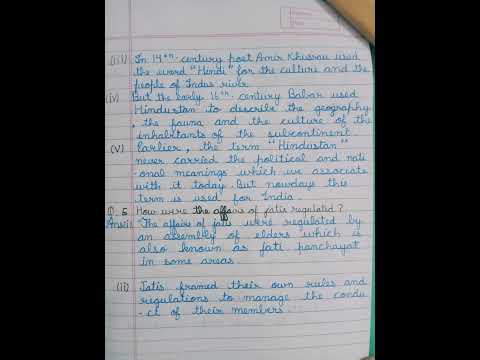 (iii) In 14th century poet Amir Khusrau used
the word "Hindi" for the culture and the
people of Indus river
(iv) But the early 16th century Babar used
Hindustan to describe the geography
, the fauna and the culture of the
inhabitants of the subcontinent.
(v) Earlier, the term "Hindustan"
never carried the political and nati
-onal meanings which we associate
with it today. But nowdays this
term is used for India.
Q.5 How were the affairs of jatis regulated?
Ans(i) The affairs of jatis were regulated by
an assembly of elders which is
also known as jati panchayat
in some areas.
(ii) Jatis framed their own rules and
regulations to manage the condu
-ct of their members.